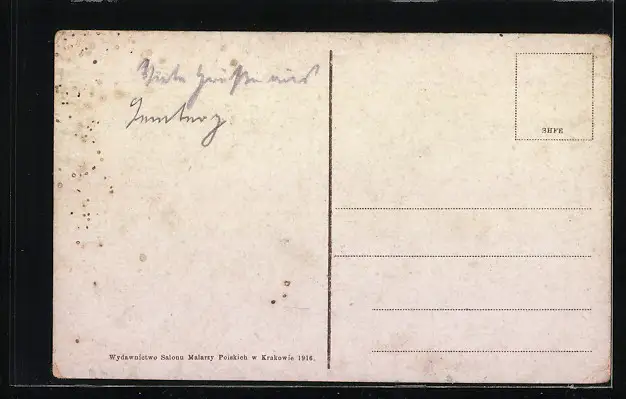 Viele Grüße aus
Lemberg
BHFE
Wydawnictwo Salonu Malarzy Polskich w Krakowie 1916.